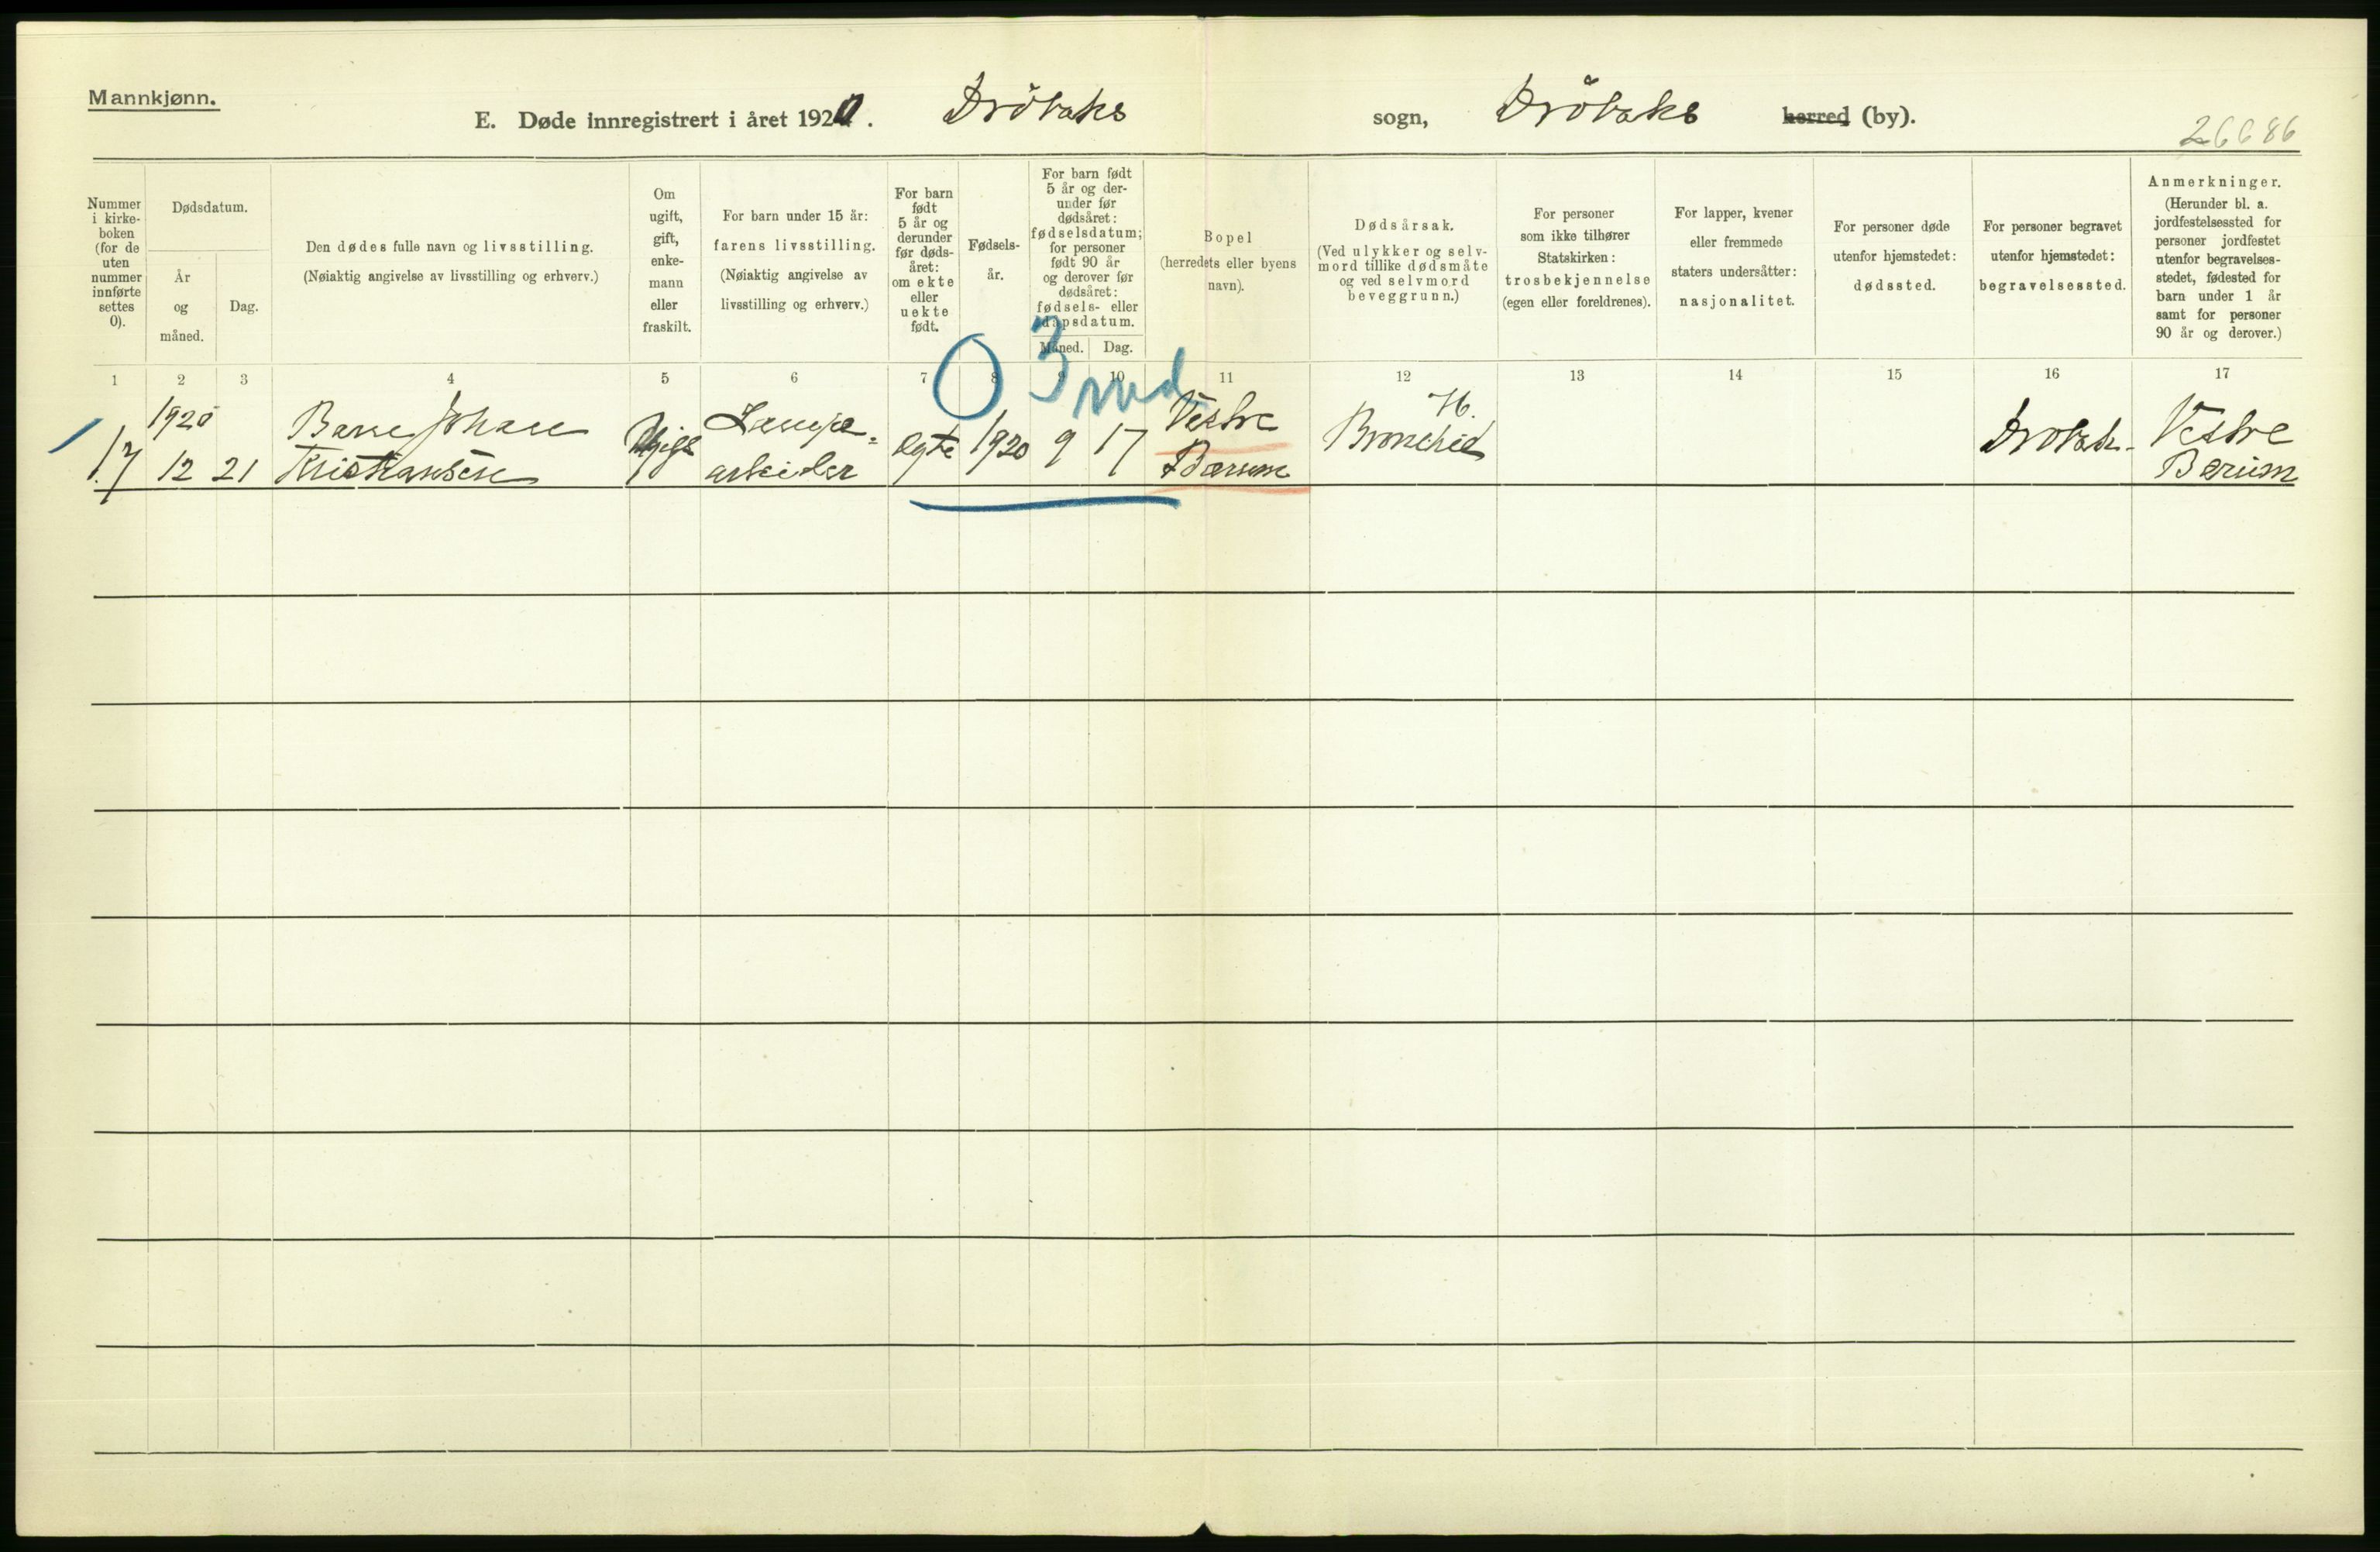 Mannkjønn.
E. Døde innregistrert i året 1920. Drøbaks sogn, Drøbaks herred (by).
26686
Nummer
i kirke-
boken
(for de
uten
nummer
innførte
settes
0).
Dødsdatum.
År
og
måned.
Dag.
Den dødes fulle navn og livsstilling.
(Nøiaktig angivelse av livsstilling og erhverv.)
Om
ugift,
gift,
enke-
mann
eller
fraskilt.
For barn under 15 år:
farens livsstilling.
(Nøiaktig angivelse av
livsstilling og erhverv.)
For barn
født
5 år og
derunder
før døds-
året:
om ekte
eller
uekte
født.
Fødsels-
år.
For barn født
5 år og der-
under før
dødsåret:
fødselsdatum;
for personer
født 90 år
og derover før
dødsåret:
fødsels- eller
dåpsdatum.
Måned. Dag.
Bopel
(herredets eller byens
navn).
Dødsårsak.
(Ved ulykker og selv-
mord tillike dødsmåte
og ved selvmord
beveggrunn.)
For personer
som ikke tilhører
Statskirken:
trosbekjennelse
(egen eller foreldrenes).
For lapper, kvener
eller fremmede
staters undersåtter:
nasjonalitet.
For personer døde
utenfor hjemstedet:
dødssted.
For personer begravet
utenfor hjemstedet:
begravelsessted.
Anmerkninger.
(Herunder bl. a.
jordfestelsessted for
personer jordfestet
utenfor begravelses-
stedet, fødested for
barn under 1 år
samt for personer
90 år og derover.)
1 2 3 4 5 6 7 8 9 10 11 12 13 14 15 16 17
0 3 md
17
1920
12 21
Johan
Kristiansen
Ugift
arbeider
egte
1920 9 17
Vestre
Bærum
76.
Bronchid
Drøbak.
Vestre
Bærum